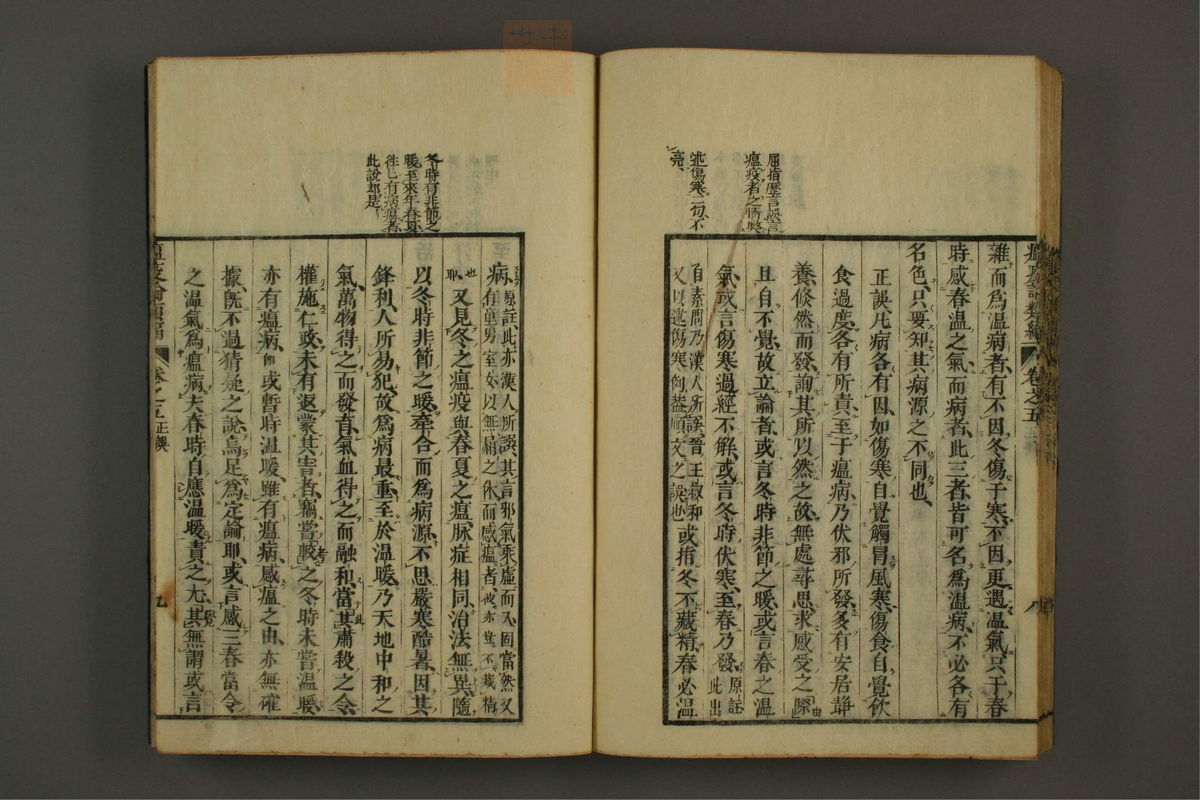 屈指歷言誤言
瘟疫者之情弊
述傷寒二句不
亮
雜而爲温病者有不因冬傷于寒不因更遇温氣只于春
時感春温之氣而病者此三者皆可名爲温病不必各有
名色只要知其病源之不同也
正誤凡病各有因如傷寒自覺觸冒風寒傷食自覺飲
食過度各有所責至于瘟病乃伏邪所發多有安居靜
養倏然而發詢其所以然之故無處尋思求感受之際
且自不覺故立論者或言冬時非節之暖或言春之温
氣或言傷寒過經不解或言冬時伏寒至春乃發原註此出
自素問乃漢人所誤晉王叔和又以述傷寒例蓋順文之誤也或指冬不藏精春必温
冬時有非節之
暖至來年春夏
徃已有病瘟者
此說却是
病原註此亦漢人所誤其言邪氣乘虛而入固當然又有童男室女以無漏之体而感瘟者彼亦豈不藏精
也耶又見冬之瘟疫與春夏之瘟脉症相同治法無異隨
以冬時非節之暖牽合而爲病源不思嚴寒酷暑因其
鋒利人所易犯故爲病最重至於温暖乃天地中和之
氣萬物得之而發育氣血得之而融和當其肅殺之令
權施仁政未有返蒙其害者竊嘗較之冬時未嘗温暖
亦有瘟病即或暫時温暖雖有瘟病感瘟之由亦無確
據旣不過猜疑之說烏足爲定論耶或言感三春當令
之温氣爲瘟病夫春時自應温暖責之尤其無謂或言
瘟疫論類編
卷之五正誤
九